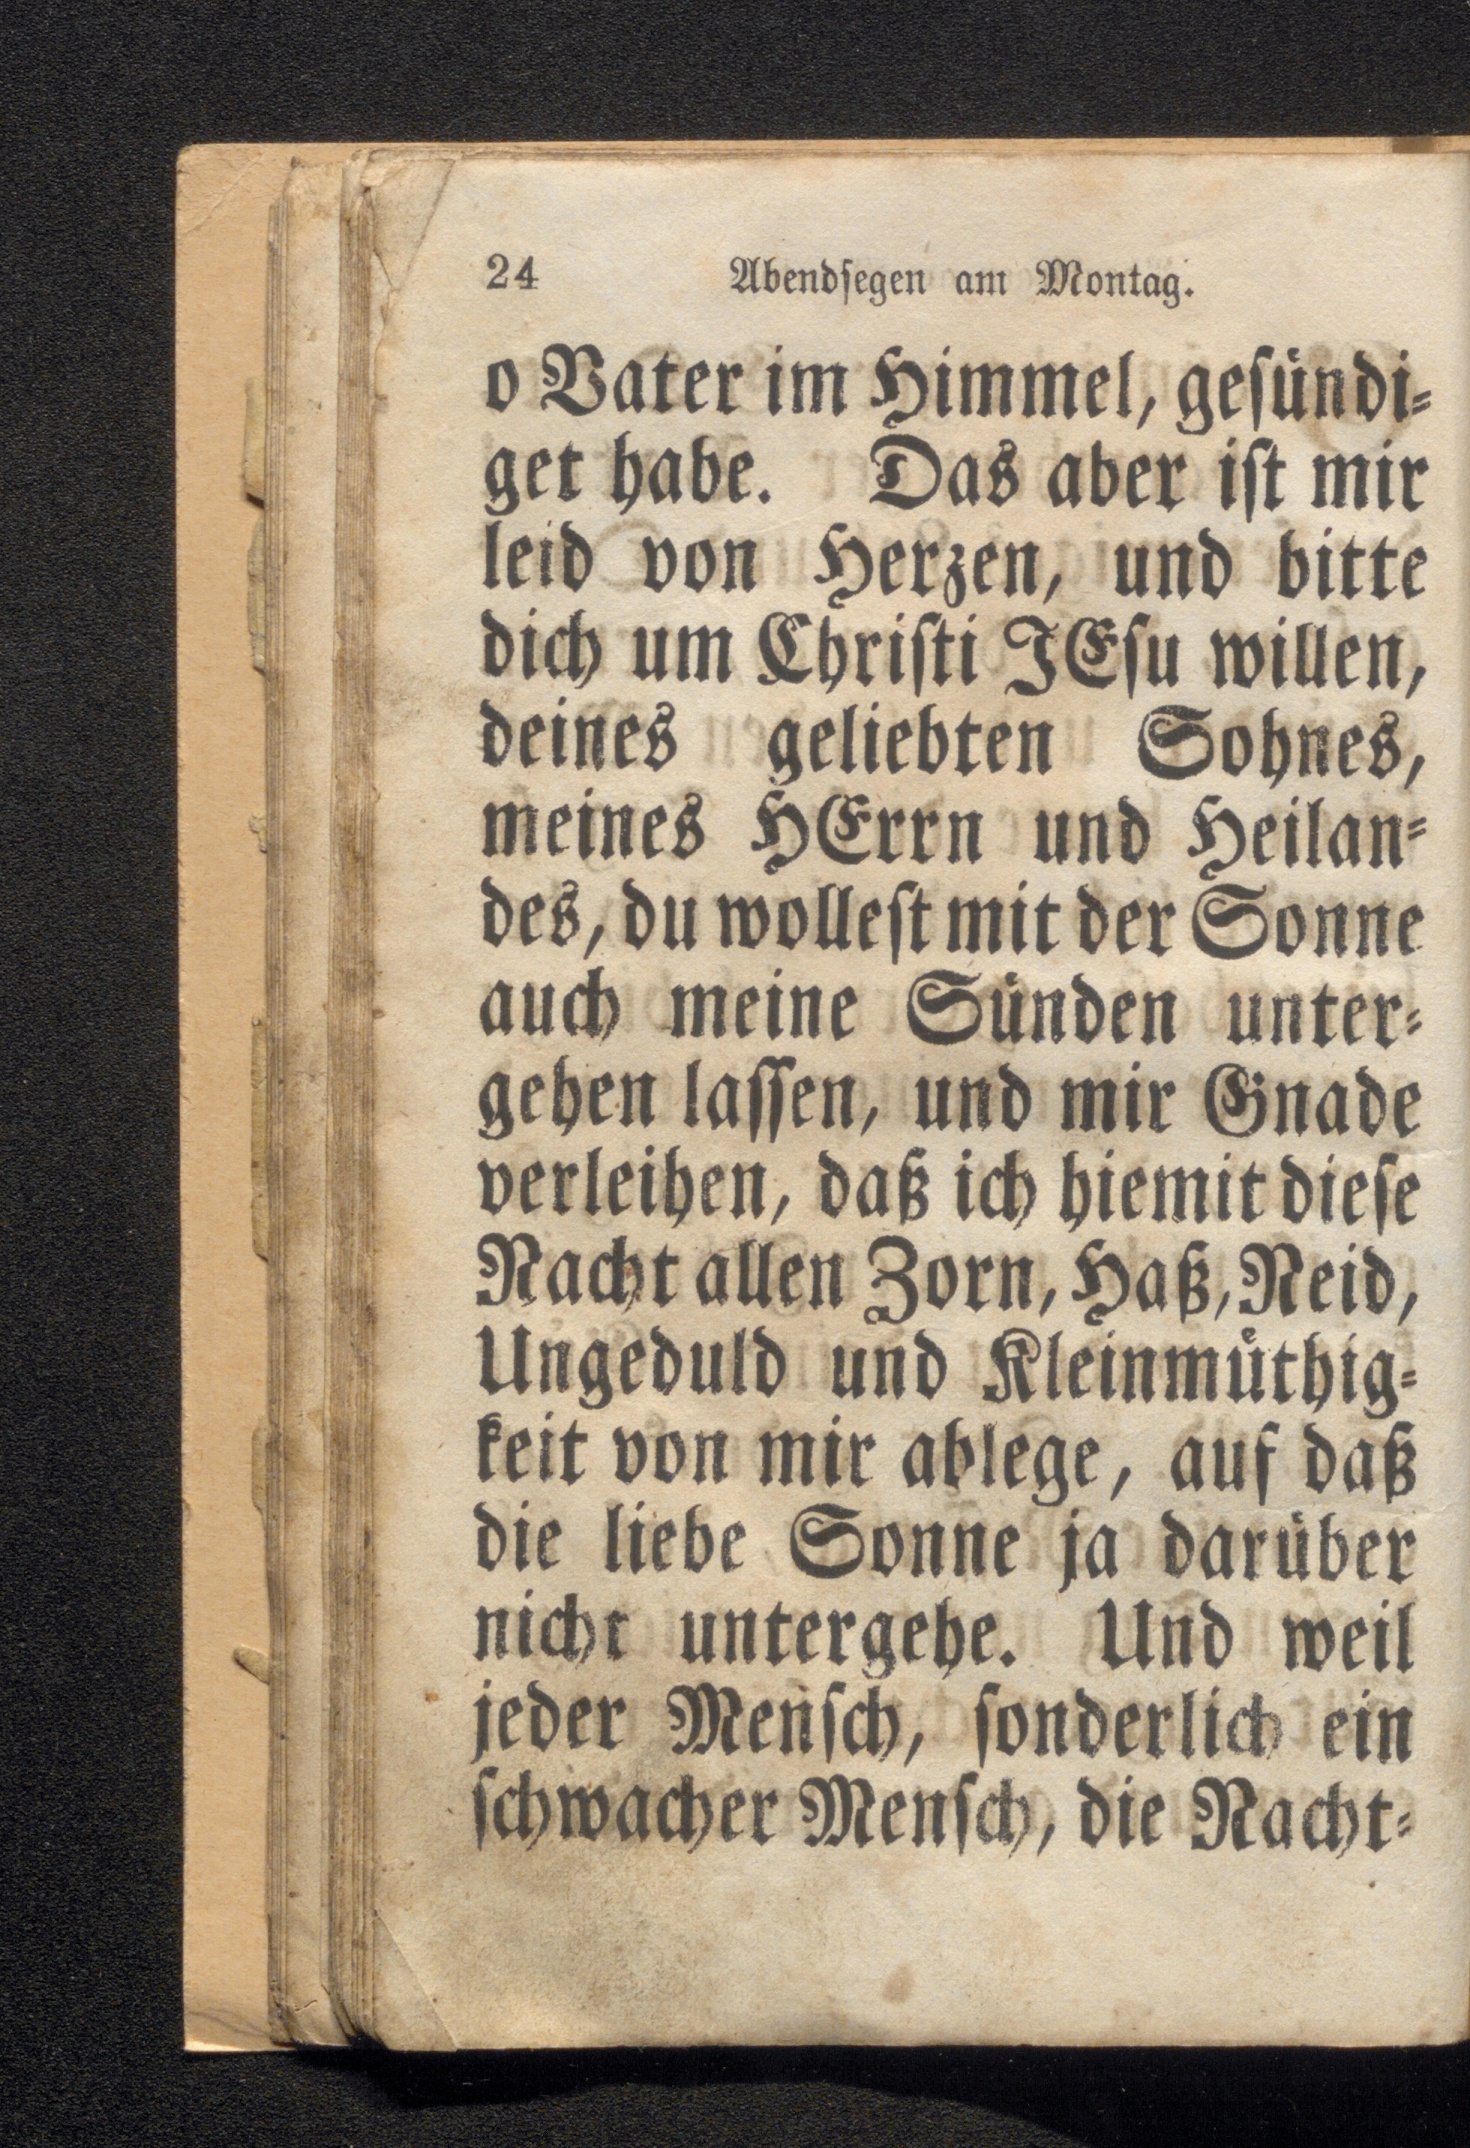 24 Abendsegen am Montag.
o Vater im Himmel, gesündi=
get habe. Das aber ist mir
leid von Herzen, und bitte
dich um Christi JEsu willen,
deines geliebten Sohnes,
meines HErrn und Heilan=
des, du wollest mit der Sonne
auch meine Sünden unter=
gehen lassen, und mir Gnade
verleihen, daß ich hiemit diese
Nacht allen Zorn, Haß, Neid,
Ungeduld und Kleinmüthig=
keit von mir ablege, auf daß
die liebe Sonne ja darüber
nicht untergehe. Und weil
jeder Mensch, sonderlich ein
schwacher Mensch, die Nacht=